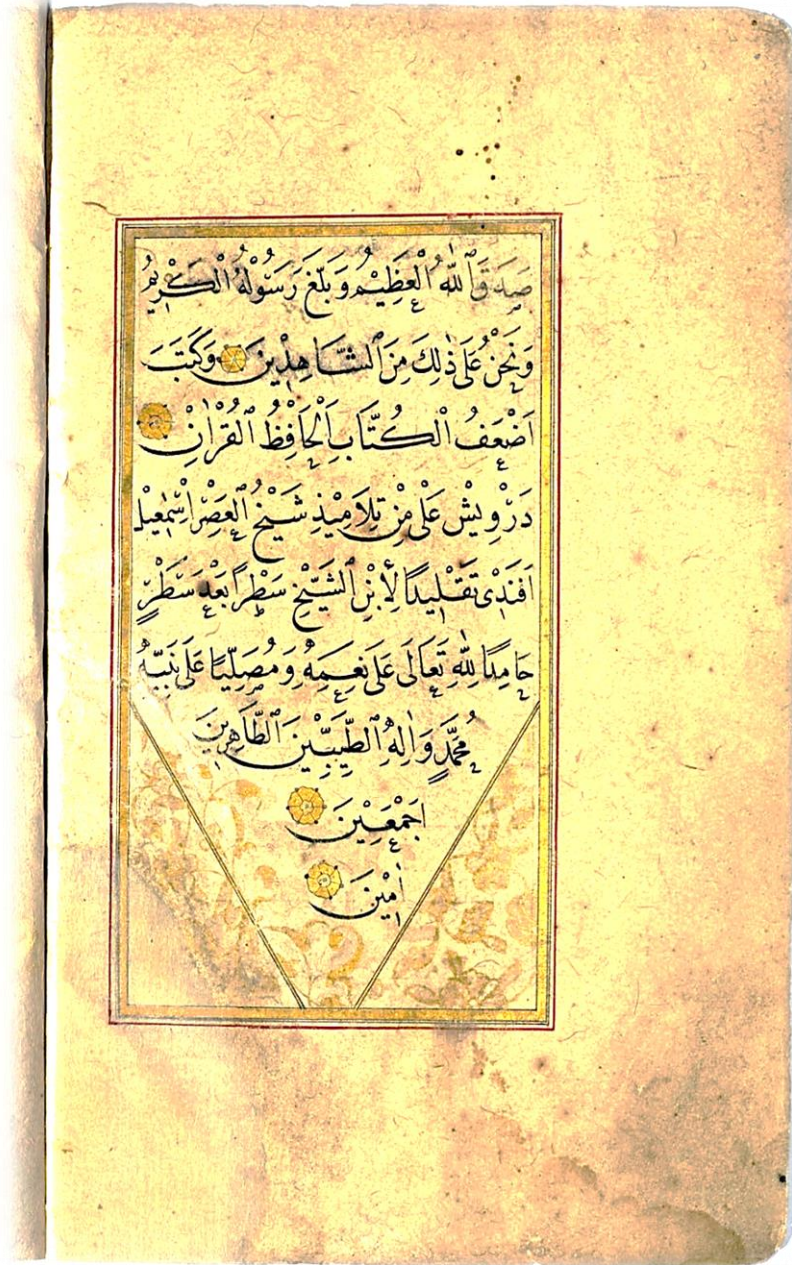 صَدَقَ ٱللّٰهُ الْعَظِيْمُ وَبَلَّغَ رَسُوْلُهُ الْكَرِيْمُ
وَنَحْنُ عَلَى ذٰلِكَ مِنَ ٱلشَّاهِدِيْنَ وَكَتَبَ
اَضْعَفُ الْكُتَّابِ اَلْحَافِظُ ٱلْقُرْاٰنِ
دَرْوِيْشْ عَلِى مِنْ تِلَامِيْذِ شَيْخُ ٱلْعَصْرِ اِسْمٰعِيْلْ
اَفَنْدِى تَقْلِيْدًا لِأِبْنِ ٱلشَّيْخِ سَطْرًا بَعْدَ سَطْرٍ
حَامِدًا لِلّٰهِ تَعَالَى عَلَى نِعَمِهِ وَمُصَلِّيًا عَلَى نَبِيِّهِ
مُحَمَّدٍ وَاٰلِهِ ٱلطَّيِّبِيْنَ ٱلطَّاهِرِيْنَ
اَجْمَعِيْنَ
اٰمِيْنَ